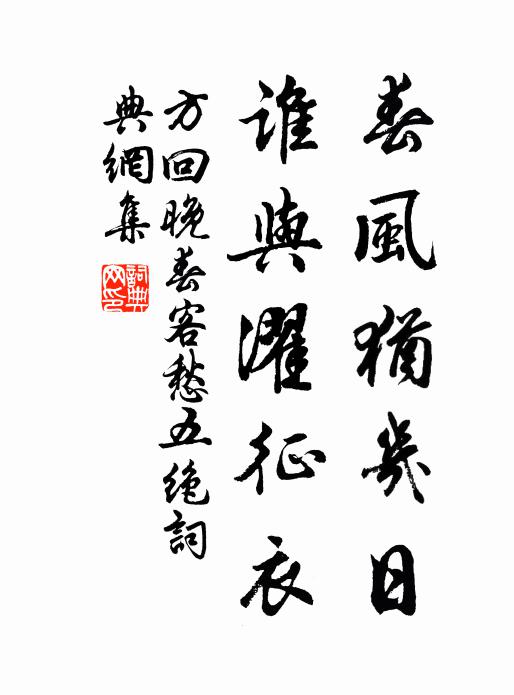 春風猶幾日
誰與濯征衣
方回晚春客愁五絶詞
典網集
詞典网印